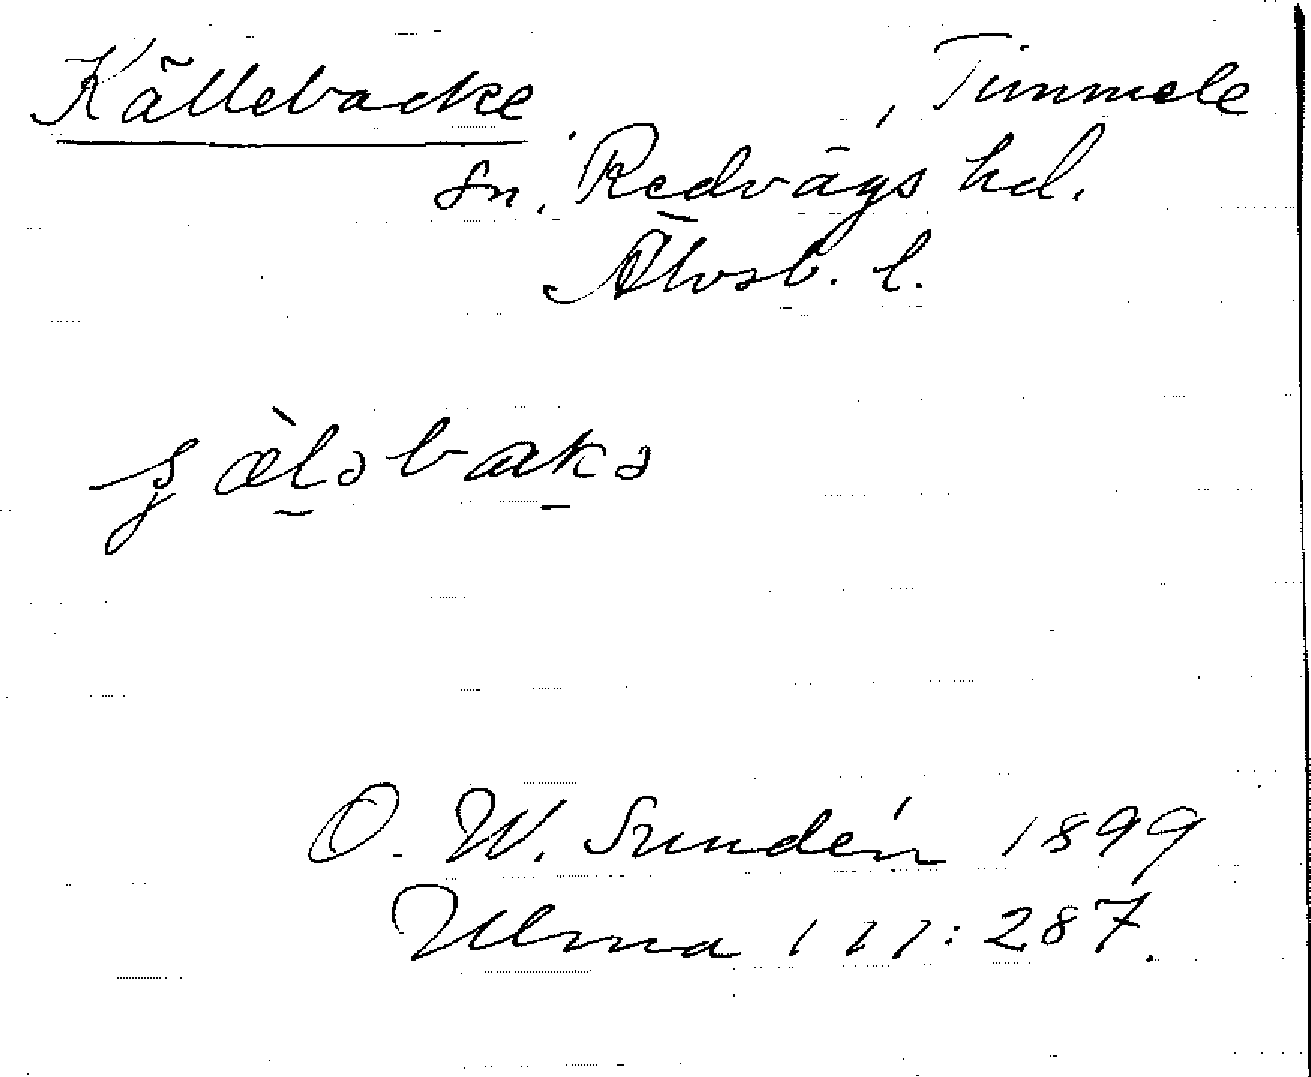 Källebacke , Timmele
sn. Redvägs hd.
Älvsb. l.
ʂæ̀ləbakə
O. W. Sundén 1899
Ulma 111:287.